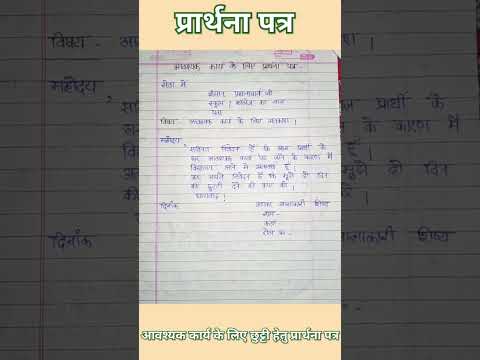 प्रार्थना पत्र
आवश्यक कार्य के लिए प्रार्थना पत्र -
सेवा में
श्रीमान प्रधानाचार्य जी
स्कूल / कॉलेज का नाम
पता
विषय - आवश्यक कार्य के लिए अवकाश ।
महोदय
सविनय निवेदन है कि आज प्रार्थी के
घर आवश्यक कार्य पड़ जाने के कारण मैं
विद्यालय आने में असमर्थ हूँ ।
अतः आपसे निवेदन है कि मुझे दो दिन
की छुट्टी देने की कृपा करें ।
धन्यवाद ।
दिनाँक
आपका आज्ञाकारी शिष्य
नाम -
कक्षा
रोल न० -
विषय -
महोदय
दिनाँक
प्रार्थी के
कारण मैं
हूँ ।
दो दिन
शिष्य
आवश्यक कार्य के लिए छुट्टी हेतु प्रार्थना पत्र